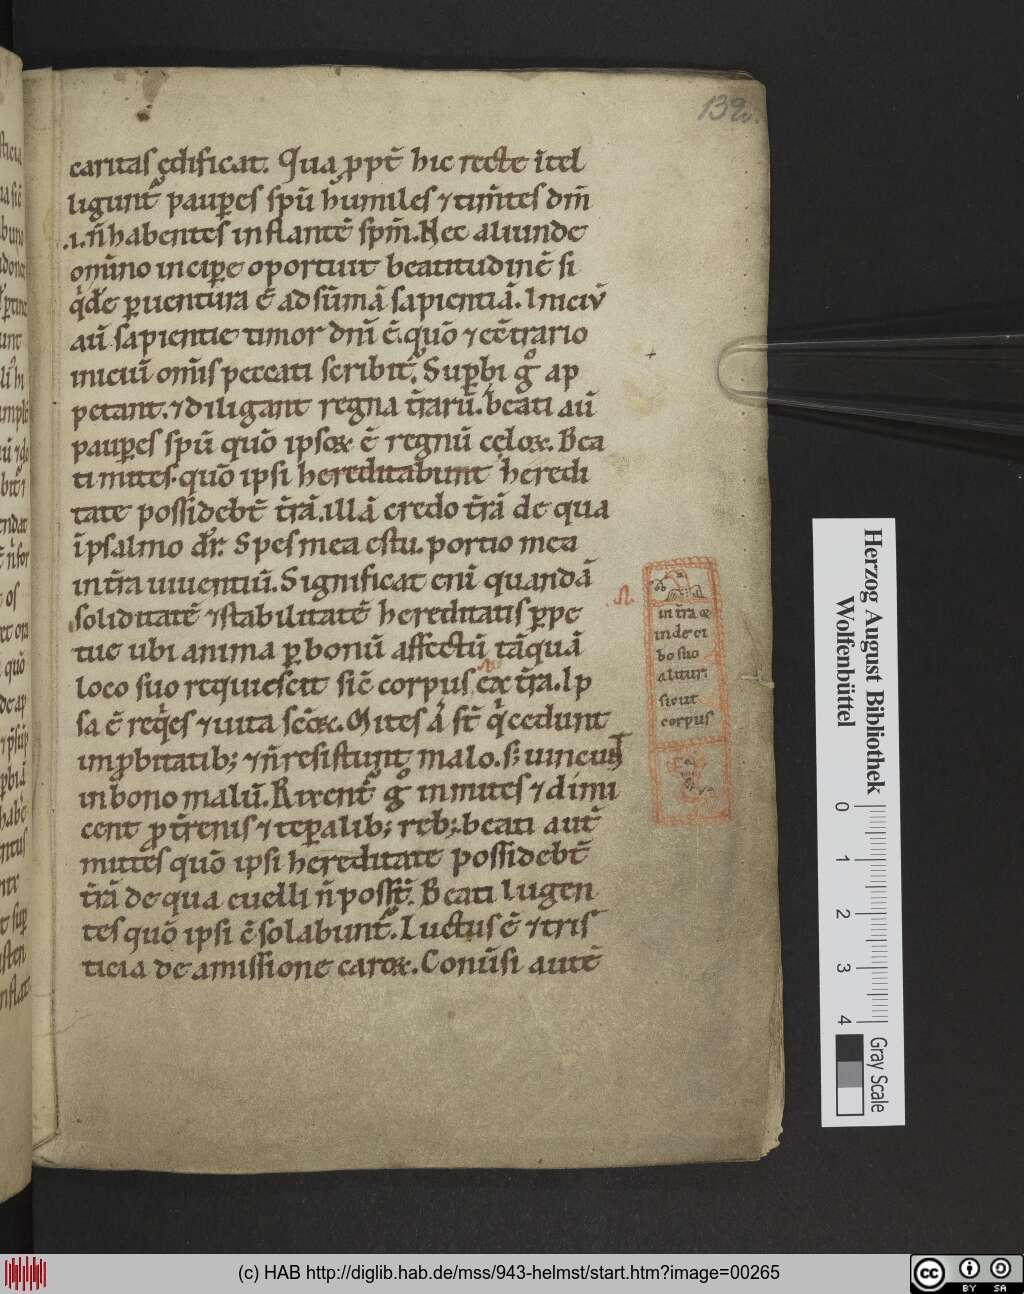 139v.
caritas ędificat. Qua ꝓpt̄ hic recte ītel
ligunt᷑ paup̱es sp̄u humiles ⁊ tim̄tes dm̄
.i. n̄ habentes inflantē sp̄m. Nec aliunde
om̄ino incip̱e oportuit beatitudinē si
qͥdē p̱uentura ē ad sūmā sapientiā. Iniciū
aū sapientie timor dn̄i ē. quō ⁊ ec̄trario
iniciū om̄is peccati scribit᷑. Sup̱bi gͦ ap
petant. ⁊ diligant regna t̄rarū. beati aū
paup̱es sp̄u quō ipsoꝝ ē regnū cęloꝝ. Bea
ti mites. quō ipsi hereditabunt heredi
tate possidebt̄ t̄rā. illā credo t̄rā de qua
ī psalmo dr̄. Spes mea es tu. portio mea
in t̄ra uiuentiū. Significat eni quandā
soliditatē ⁊ stabilitatē hereditatis p̱pe
tue ubi anima p̱ bonū affectū tāquā
loco suo requiescit sic̄ corpus ex t̄ra. Ip
sa ē reqͥes ⁊ uita sc̄oꝝ. Mites aū st̄ qͥ cedunt
imꝓbitatib; ⁊ n̄ resistunt malo. s; uincunt
in bono malū. Rixent᷑ gͦ inmites ⁊ dimi
cent ꝓ t̄renis ⁊ tēp̱alib; reb; beati aut̄
mites quō ipsi hereditate possidebt̄
t̄rā de qua euelli n̄ poss̄t. Beati lugen
tes quō ipsi c̄solabunt᷑. Luctus ē ⁊ tris
ticia de amissione caroꝝ. Conūsi autē
in t̄ra &
inde ci
bo suo
alitur
sicut
corpus
Herzog August Bibliothek
Wolfenbüttel
0 1 2 3 4
Gray Scale
(c) HAB http://diglib.hab.de/mss/943-helmst/start.htm?image=00265
cc BY SA